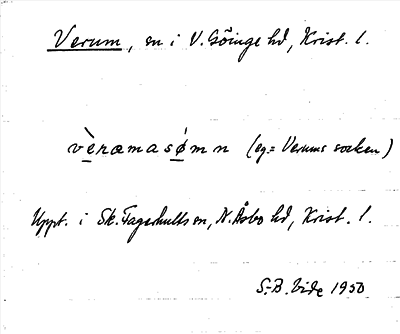 Verum, sn i V. Göinge hd, Krist. l.
vèræmasómn (eg. = Verums socken)
Uppt. i Sk. Fagerhults sn, N. Åsbo hd, Krist. l.
S.-B. Vide 1950